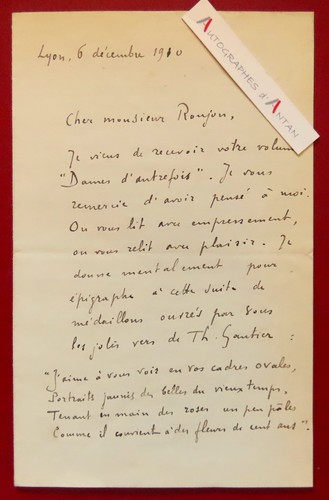 AUTOGRAPHES d'ANTAN
Lyon, 6 décembre 1910
Cher monsieur Roujon,
Je viens de recevoir votre volume
"Dames d'autrefois". Je vous
remercie d'avoir pensé à moi.
On vous lit avec empressement,
on vous relit avec plaisir. Je
donne mentalement pour
épigraphe à cette suite de
médaillons ouvrés par vous
les jolis vers de Th. Gautier :
"J'aime à vous voir en vos cadres ovales,
Portraits jaunis des belles du vieux temps,
Tenant en main des roses un peu pâles
Comme il convient à des fleurs de cent ans".